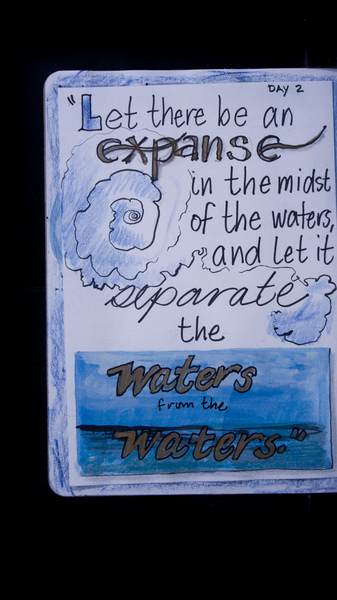 DAY 2
"Let there be an
expanse
in the midst
of the waters,
and let it
separate
the
waters
from the
waters."